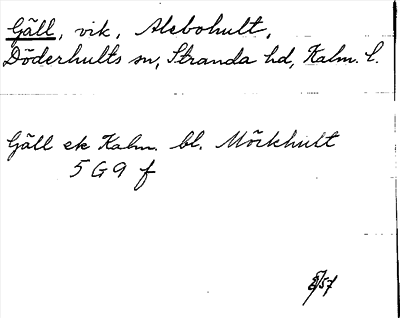 Gäll, vik, Alebohult,
Döderhults sn, Stranda hd, Kalm. l.
Gäll ek Kalm. bl. Mörkhult
5 G 9 f
/57